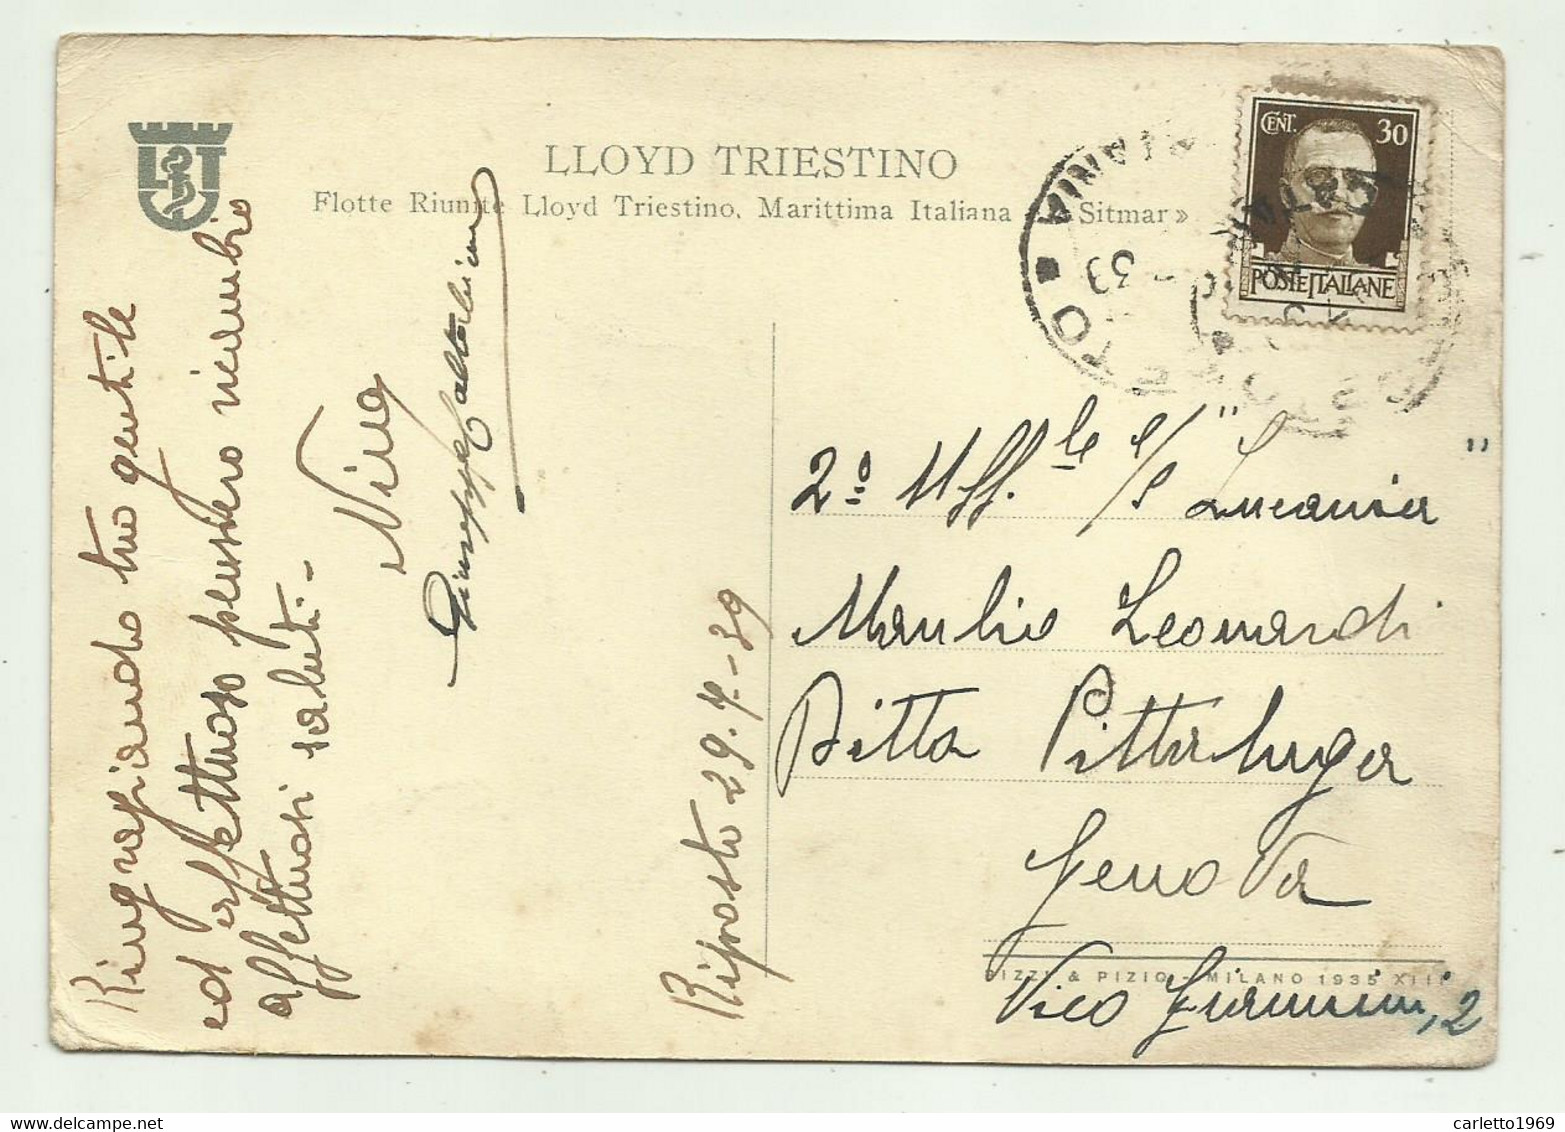 LT
LLOYD TRIESTINO
Flotte Riunite Lloyd Triestino, Marittima Italiana e « Sitmar »
CENT. 30
POSTE ITALIANE
Ringraziando tuo gentile
ed affettuoso pensiero ricambio
affettuosi saluti -
Nina
Giuseppe
Riposto 29.7.-39
2º Uff.le p/s "Lucania"
Manlio Leonardi
Ditta Pittaluga
Genova
Vico Giannini, 2
PIZZI & PIZIO - MILANO 1935 XIII
carletto1969